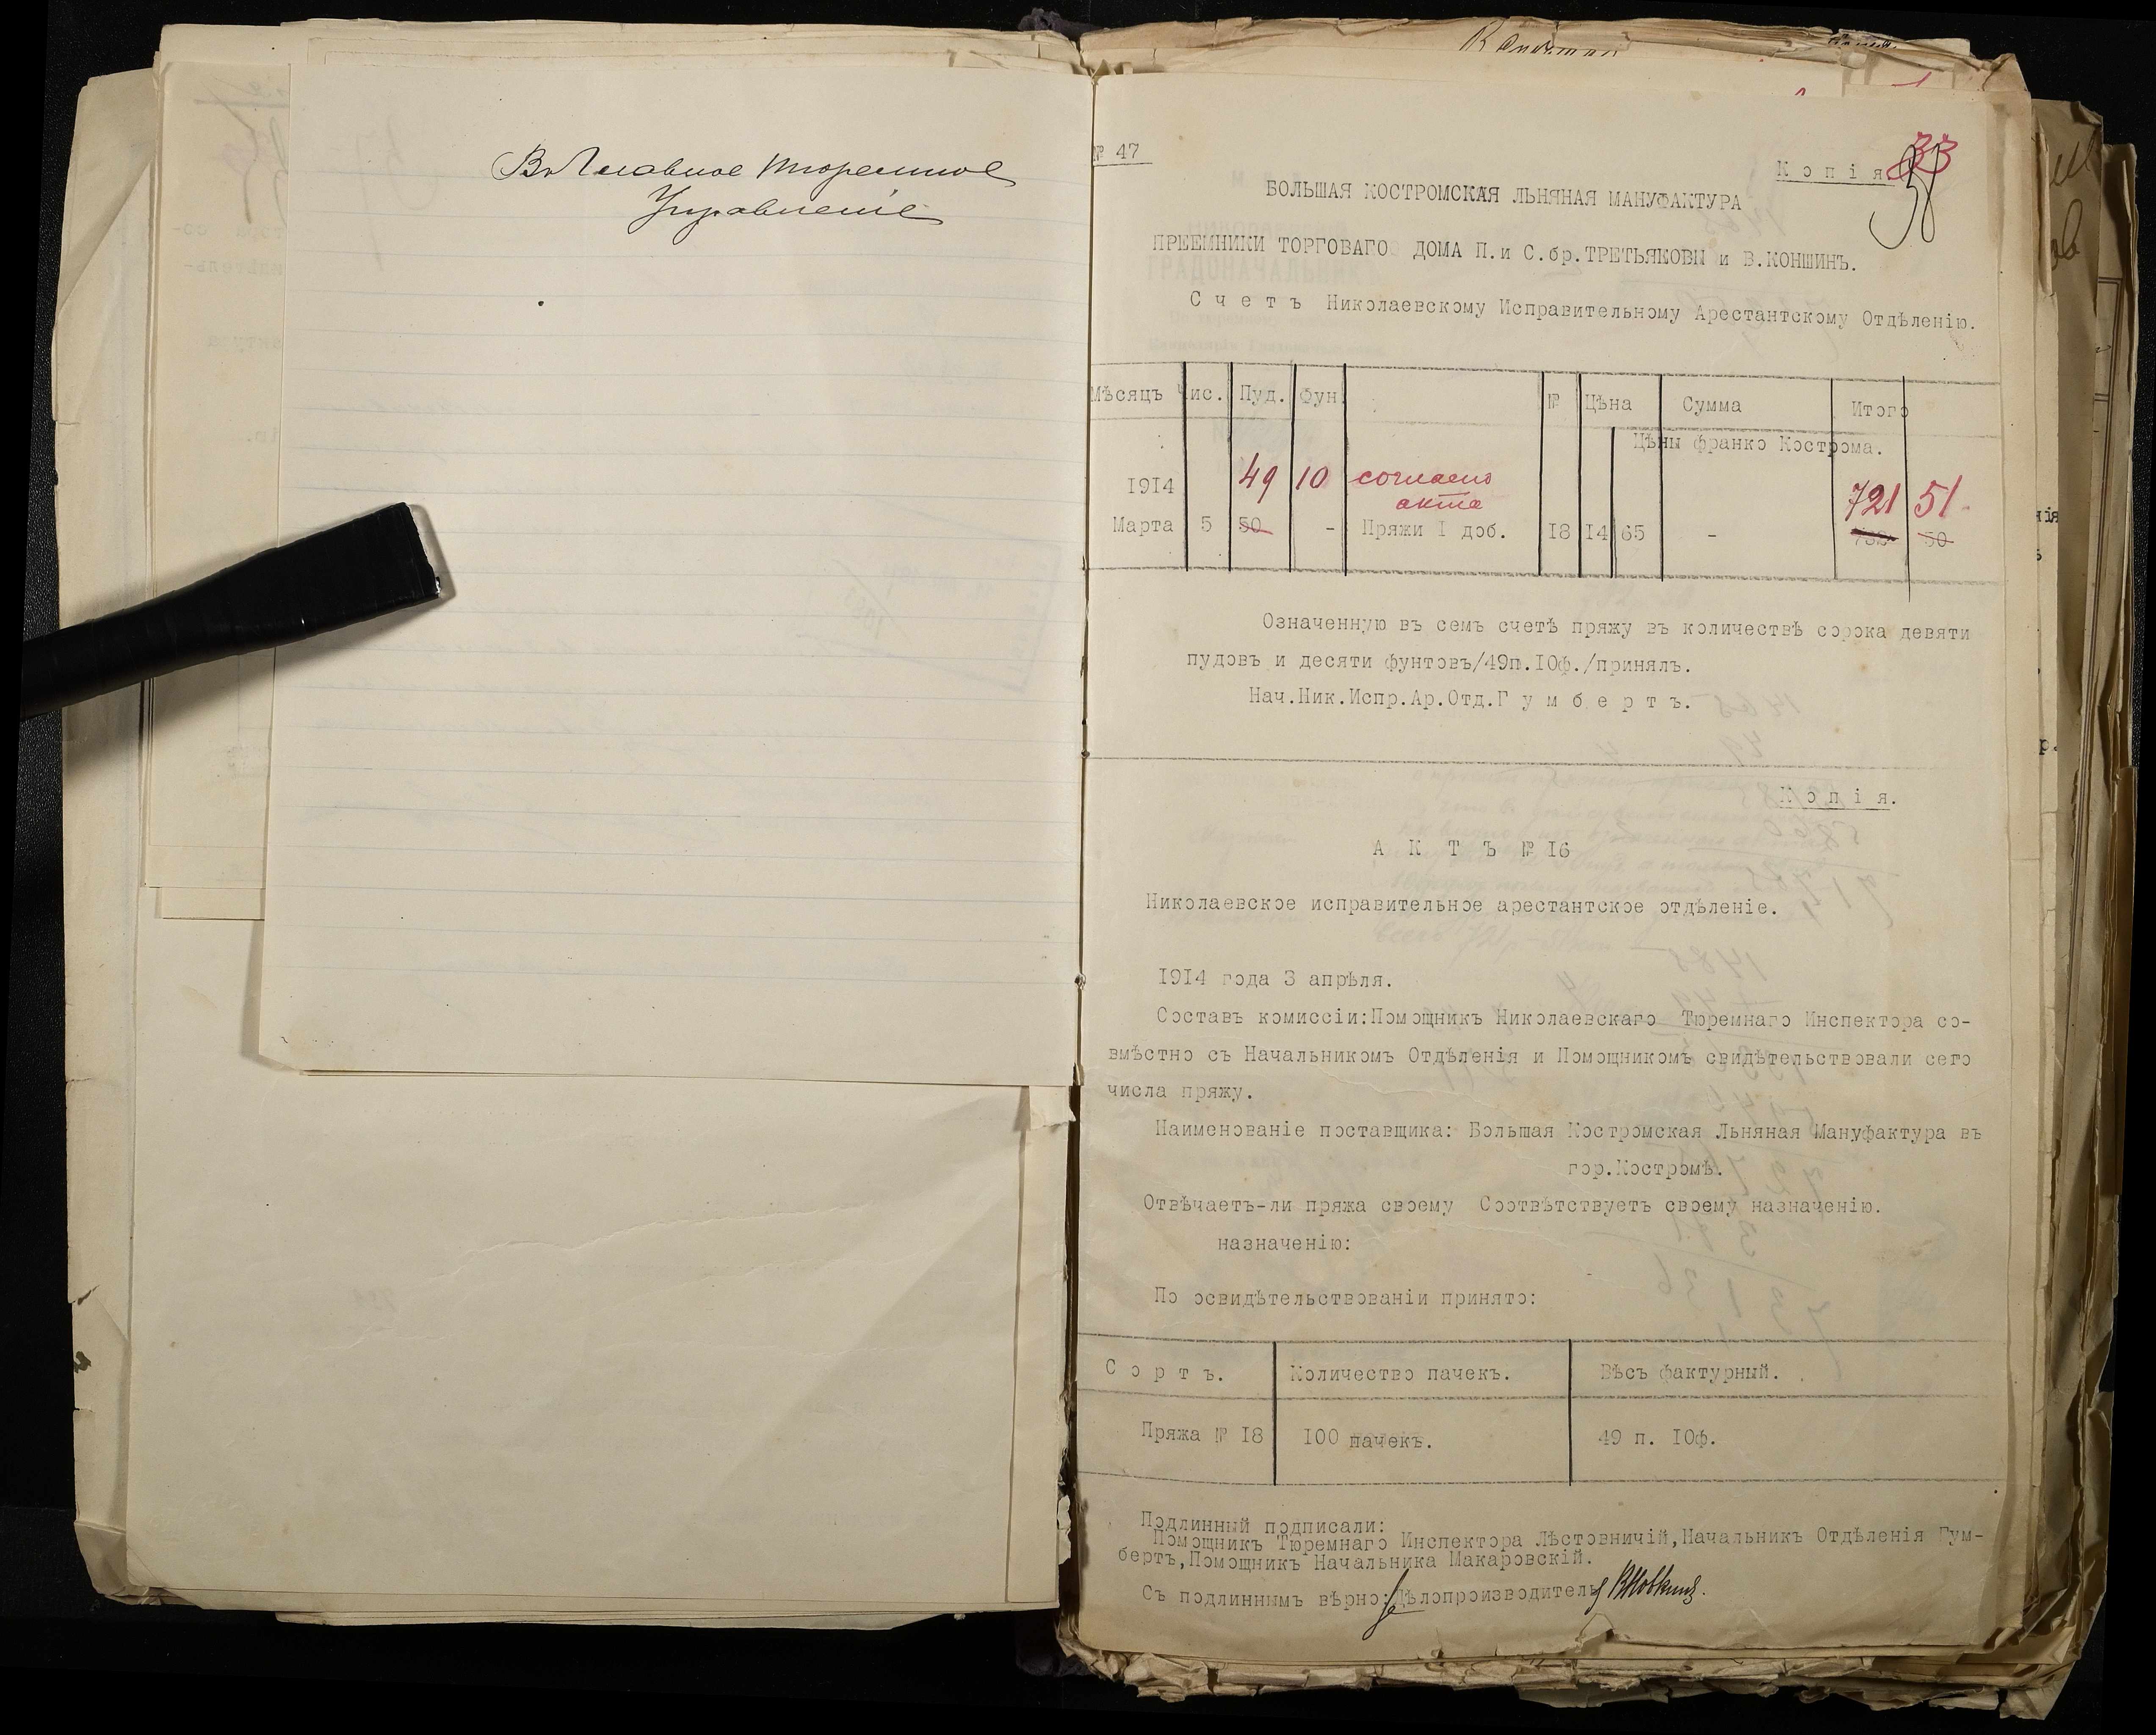 Въ Главное Тюремное
Управленіе
№ 47
33
Копія
БОЛЬШАЯ КОСТРОМСКАЯ ЛЬНЯНАЯ МАНУФАКТУРА
ПРЕЕМНИКИ ТОРГОВАГО ДОМА П.и С.бр.ТРЕТЬЯКОВЫ и В.КОНШИНЪ.
Счетъ Николаевскому Исправительному Арестантскому Отдѣленію.
Мѣсяцъ Чис. Пуд. Фун. № Цѣна Сумма Итого
Цѣны франко Кострома.
1914 49 10 согласно акта 721 51
Марта 5 50 - Пряжи I доб. I8 I4 65 - 732 50
Означенную въ семъ счетѣ пряжу въ количествѣ сорока девяти
пудовъ и десяти фунтовъ/49п.IOф./принялъ.
Нач.Ник.Испр.Ар.Отд.Гумбертъ.
Копія.
АКТЪ № I6
Николаевское исправительное арестантское отдѣленіе.
I9I4 года 3 апрѣля.
Составъ комиссіи:Помощникъ Николаевскаго Тюремнаго Инспектора со-
вмѣстно съ Начальникомъ Отдѣленія и Помощникомъ свидѣтельствовали сего
числа пряжу.
Наименованіе поставщика: Большая Костромская Льняная Мануфактура въ
гор.Костромѣ.
Отвѣчаетъ-ли пряжа своему Соотвѣтствуетъ своему назначенію.
назначенію:
По освидѣтельствованіи принято:
Сортъ. Количество пачекъ. Вѣсъ фактурный.
Пряжа № I8 I00 пачекъ. 49 п. IOф.
Подлинный подписали:
Помощникъ Тюремнаго Инспектора Лѣстовничій,Начальникъ Отдѣленія Гум-
бертъ,Помощникъ Начальника Макаровскій.
Съ подлиннымъ вѣрно:Дѣлопроизводитель